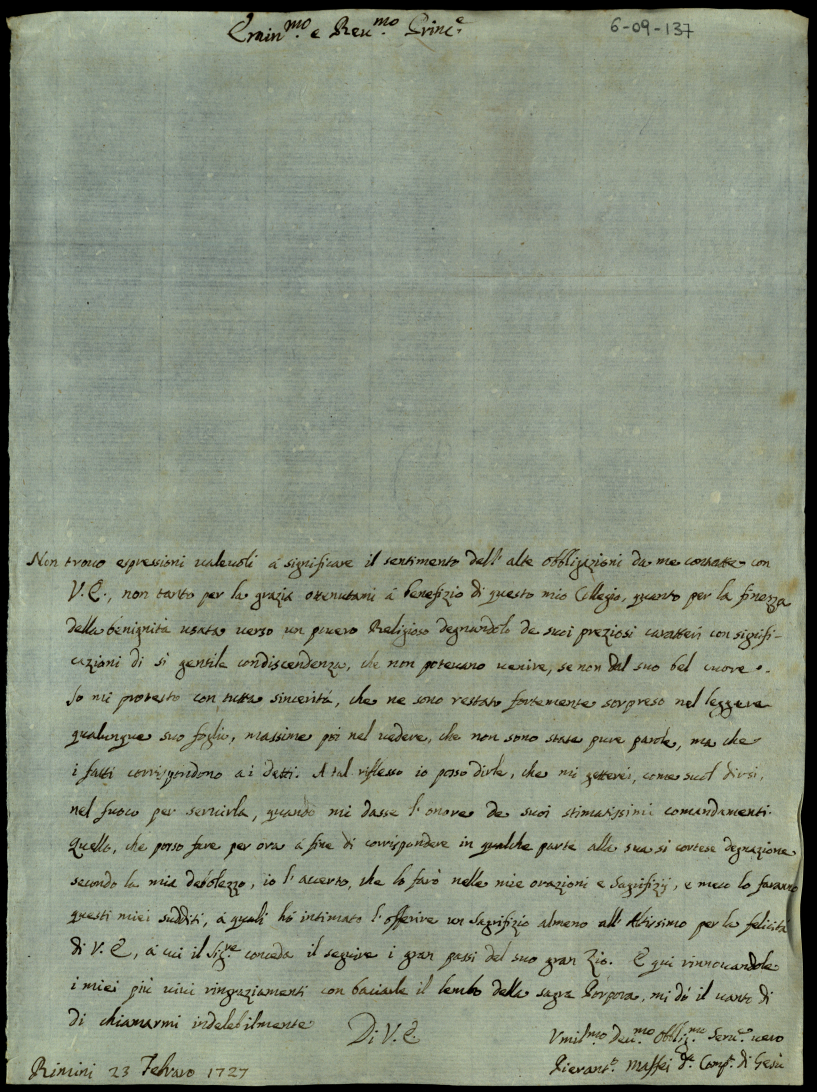 Emin.mo e Reu.mo Princ.e
6-09-137
Non trouo espressioni ualeuoli à significare il sentimento dell' alte obbligazioni da me contratte con
V.E., non tanto per la grazia ottenutami à benefizio di questo mio Collegio, quanto per la finezza
della benignità usata uerso un pouero Religioso degnandolo de suoi preziosi caratteri con signifi-
cazioni di sì gentile condiscendenza, che non poteuano uenire, se non dal suo bel cuore.
Io mi protesto con tutta sincerità, che ne sono restato fortemente sorpreso nel leggere
qualunque suo foglio, massime poi nel uedere, che non sono state pure parole, ma che
i fatti corrispondono a i detti. A tal riflesso io posso dirle, che mi getterei, come suol dirsi,
nel fuoco per seruirla, quando mi dasse l' onore de suoi stimatissimi comandamenti.
Quello, che posso fare per ora à fine di corrispondere in qualche parte alla sua sì cortese degnazione
secondo la mia debolezza, io l' accerto, che lo farò nelle mie orazioni e Sagrifizij, e meco lo faranno
questi miei sudditi, à quali hò intimato l' offerire un Sagrifizio almeno all' Altissimo per la felicità
di V.E., à cui il Sig.re conceda il seguire i gran passi del suo gran Zio. E qui rinnouandole
i miei più uiui ringraziamenti con baciarle il lembo della sagra Porpora, mi dò il uanto di
di chiamarmi indelebilmente
Di V.E.
Vmil.mo Deu.mo Obblig.mo Seru.e uero
Pierant.o Maffei d.a Comp.a di Gesù
Rimini 23 Febraro 1727